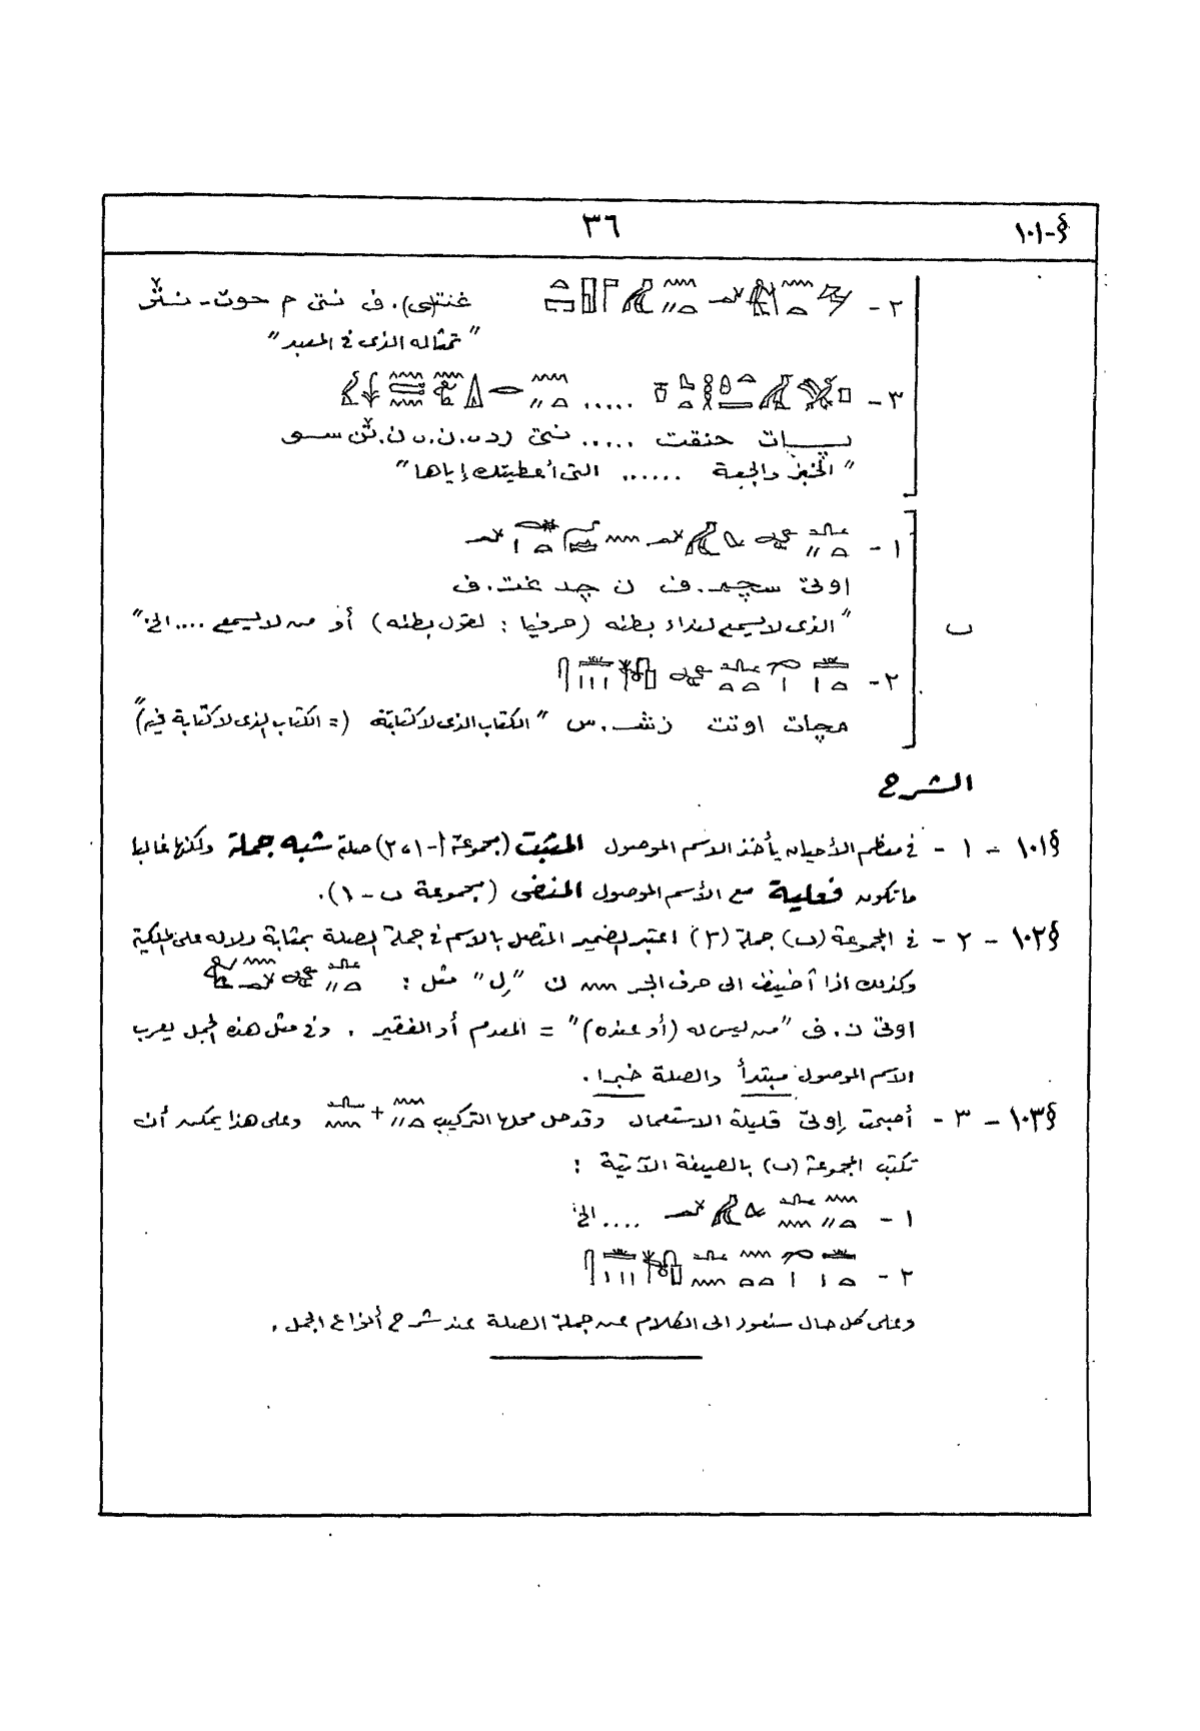 §-١٠١ ٣٦
٢- غنت(ى).ف نتى م حوت-نثر
"تمثاله الذى فى المعبد"
٣- .....
پات حنقت ..... نتى رد.ن.ى ن.ثن سو
"الخبز والجعة ...... التى أعطيتك إياها"
١-
اوتى سچم.ف ن چد غت.ف
"الذى لا يسمع لنداء بطنه (حرفيا : لقول بطنه) أو من لا يسمع .... الخ"
ب
٢-
مچات اوتت زش.س "الكتاب الذى لا كتابته (= الكتاب الذى لا كتابة فيه)"
الشرح
§١٠١ - ١ - فى معظم الأحيان يأخذ الاسم الموصول المثبت (مجموعة أ-٢،١) صلة شبه جملة ولكنها غالبا
ما تكون فعلية مع الأسم الموصول المنفى (مجموعة ب-١).
§١٠٢ - ٢ - فى المجموعة (ب) جملة (٢) اعتبر الضمير المتصل بالاسم فى جملة الصلة بمثابة دلاله على الملكية
وكذلك اذا أضيف الى حرف الجر ن "لِ" مثل :
اوتى ن.ف "من ليس له (أو عنده)" = المعدم أو الفقير . وفى مثل هذه الجمل يعرب
الاسم الموصول مبتدأ والصلة خبرا .
§١٠٣ - ٣ - أصبحت إوتى قليلة الاستعمال وقد حل محلها التركيب + وعلى هذا يمكن أن
تكتب المجموعة (ب) بالصيغة الآتية :
١- .... الخ
٢-
وعلى كل حال سنعود الى الكلام عن جملة الصلة عند شرح أنواع الجمل .